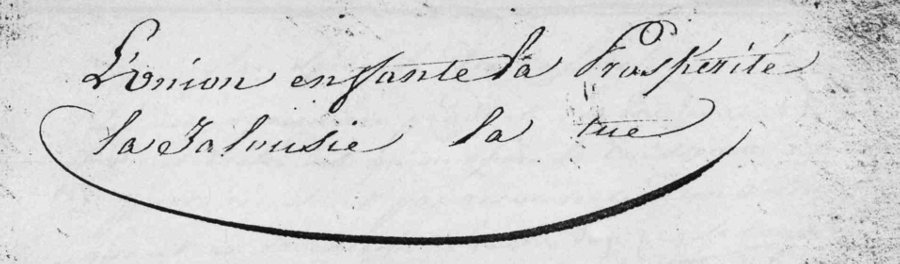 L'Union enfante la Prospérité
la Jalousie la tue